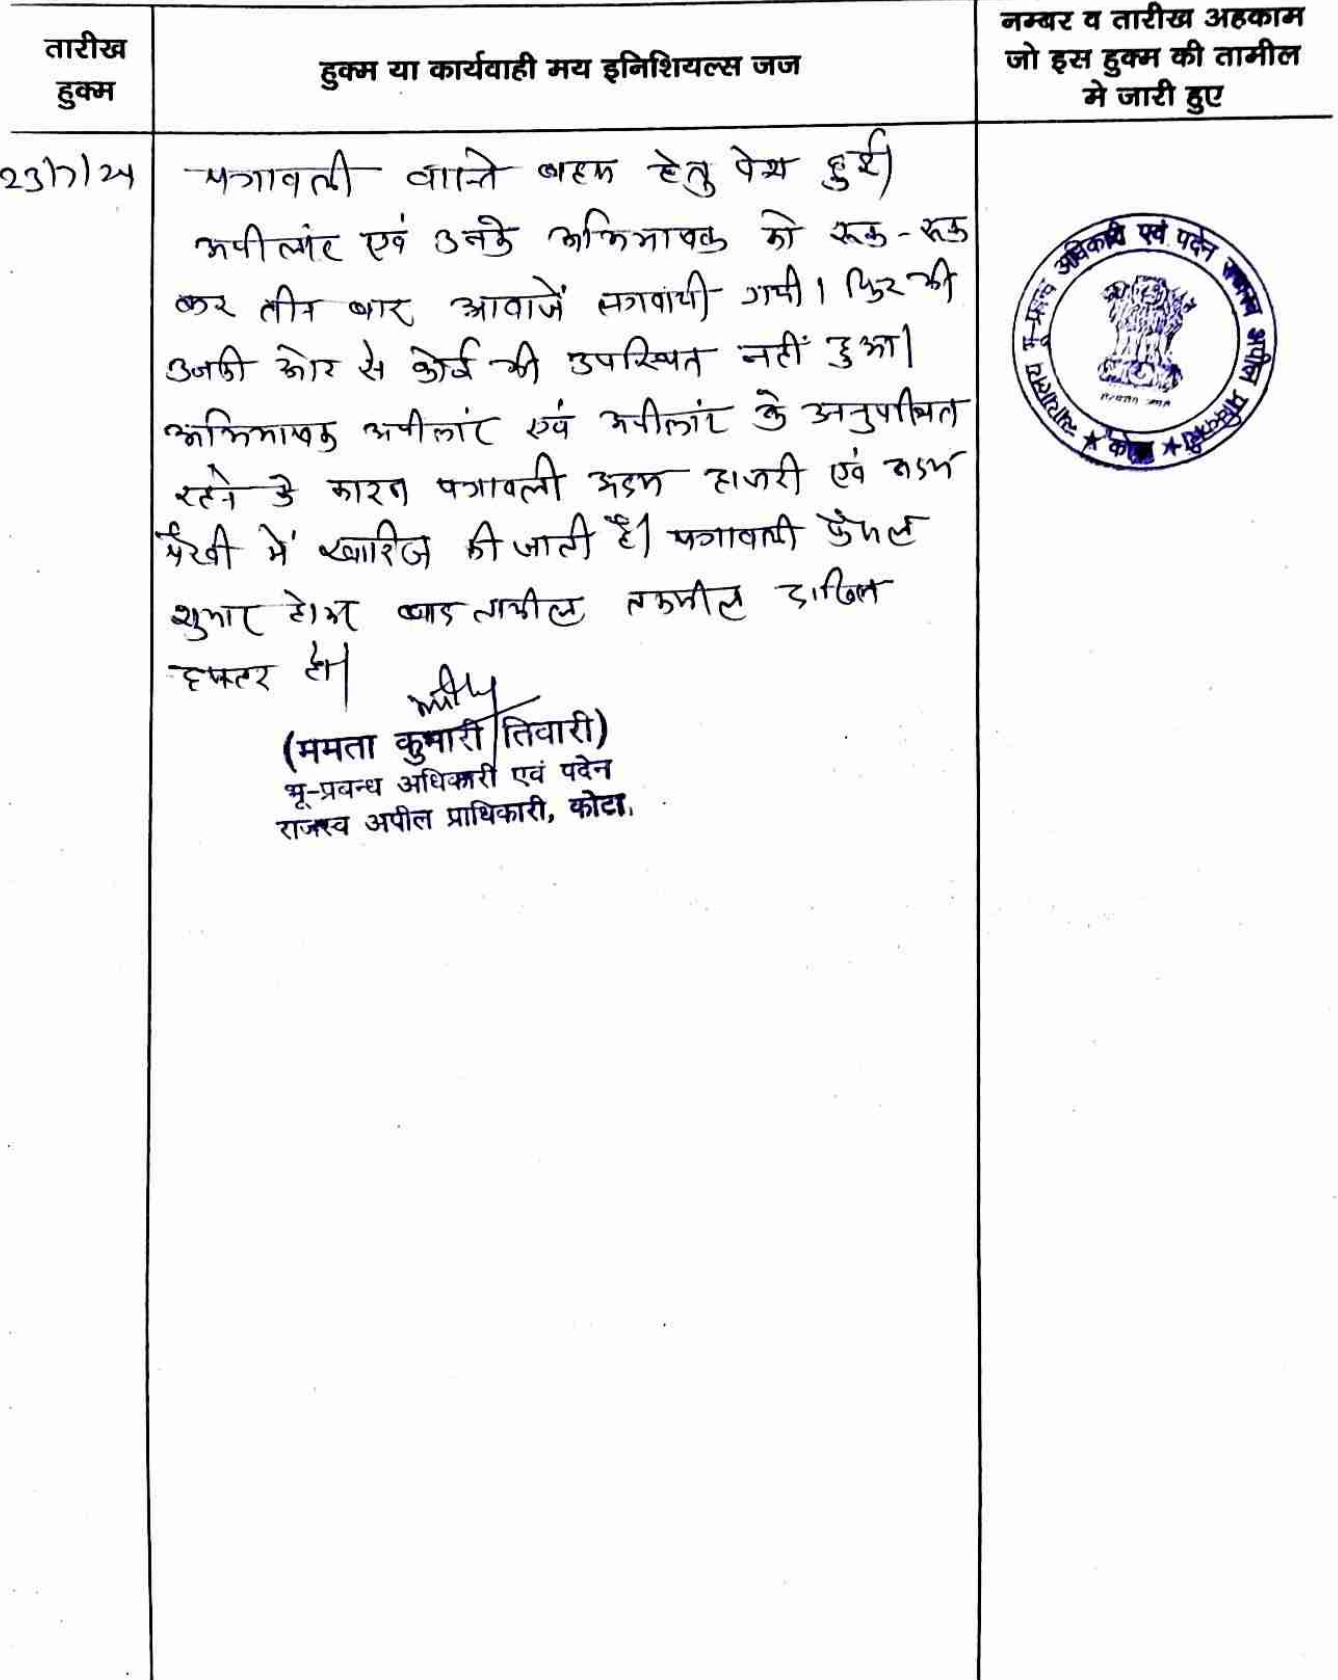 तारीख
हुक्म
हुक्म या कार्यवाही मय इनिशियल्स जज
नम्बर व तारीख अहकाम
जो इस हुक्म की तामील
मे जारी हुए
23/7/24
पत्रावली वास्ते बहस हेतु पेश हुई।
अपीलांट एवं उनके अभिभाषक को रूक-रूक
कर तीन बार आवाजें लगवायी गयी। फिर भी
उनकी ओर से कोई भी उपस्थित नहीं हुआ।
अभिभाषक अपीलांट एवं अपीलांट के अनुपस्थित
रहने के कारन पत्रावली अदम हाजरी एवं अदम
पैरवी में खारिज की जाती है। पत्रावली फैसल
शुमार होकर बाद तामील तकमील दाखिल
दफ्तर हो।
(ममता कुमारी तिवारी)
भू-प्रबन्ध अधिकारी एवं पदेन
राजस्व अपील प्राधिकारी, कोटा.
न्यायालय भू-प्रबन्ध अधिकारी एवं पदेन राजस्व अपील प्राधिकारी
★ कोटा ★